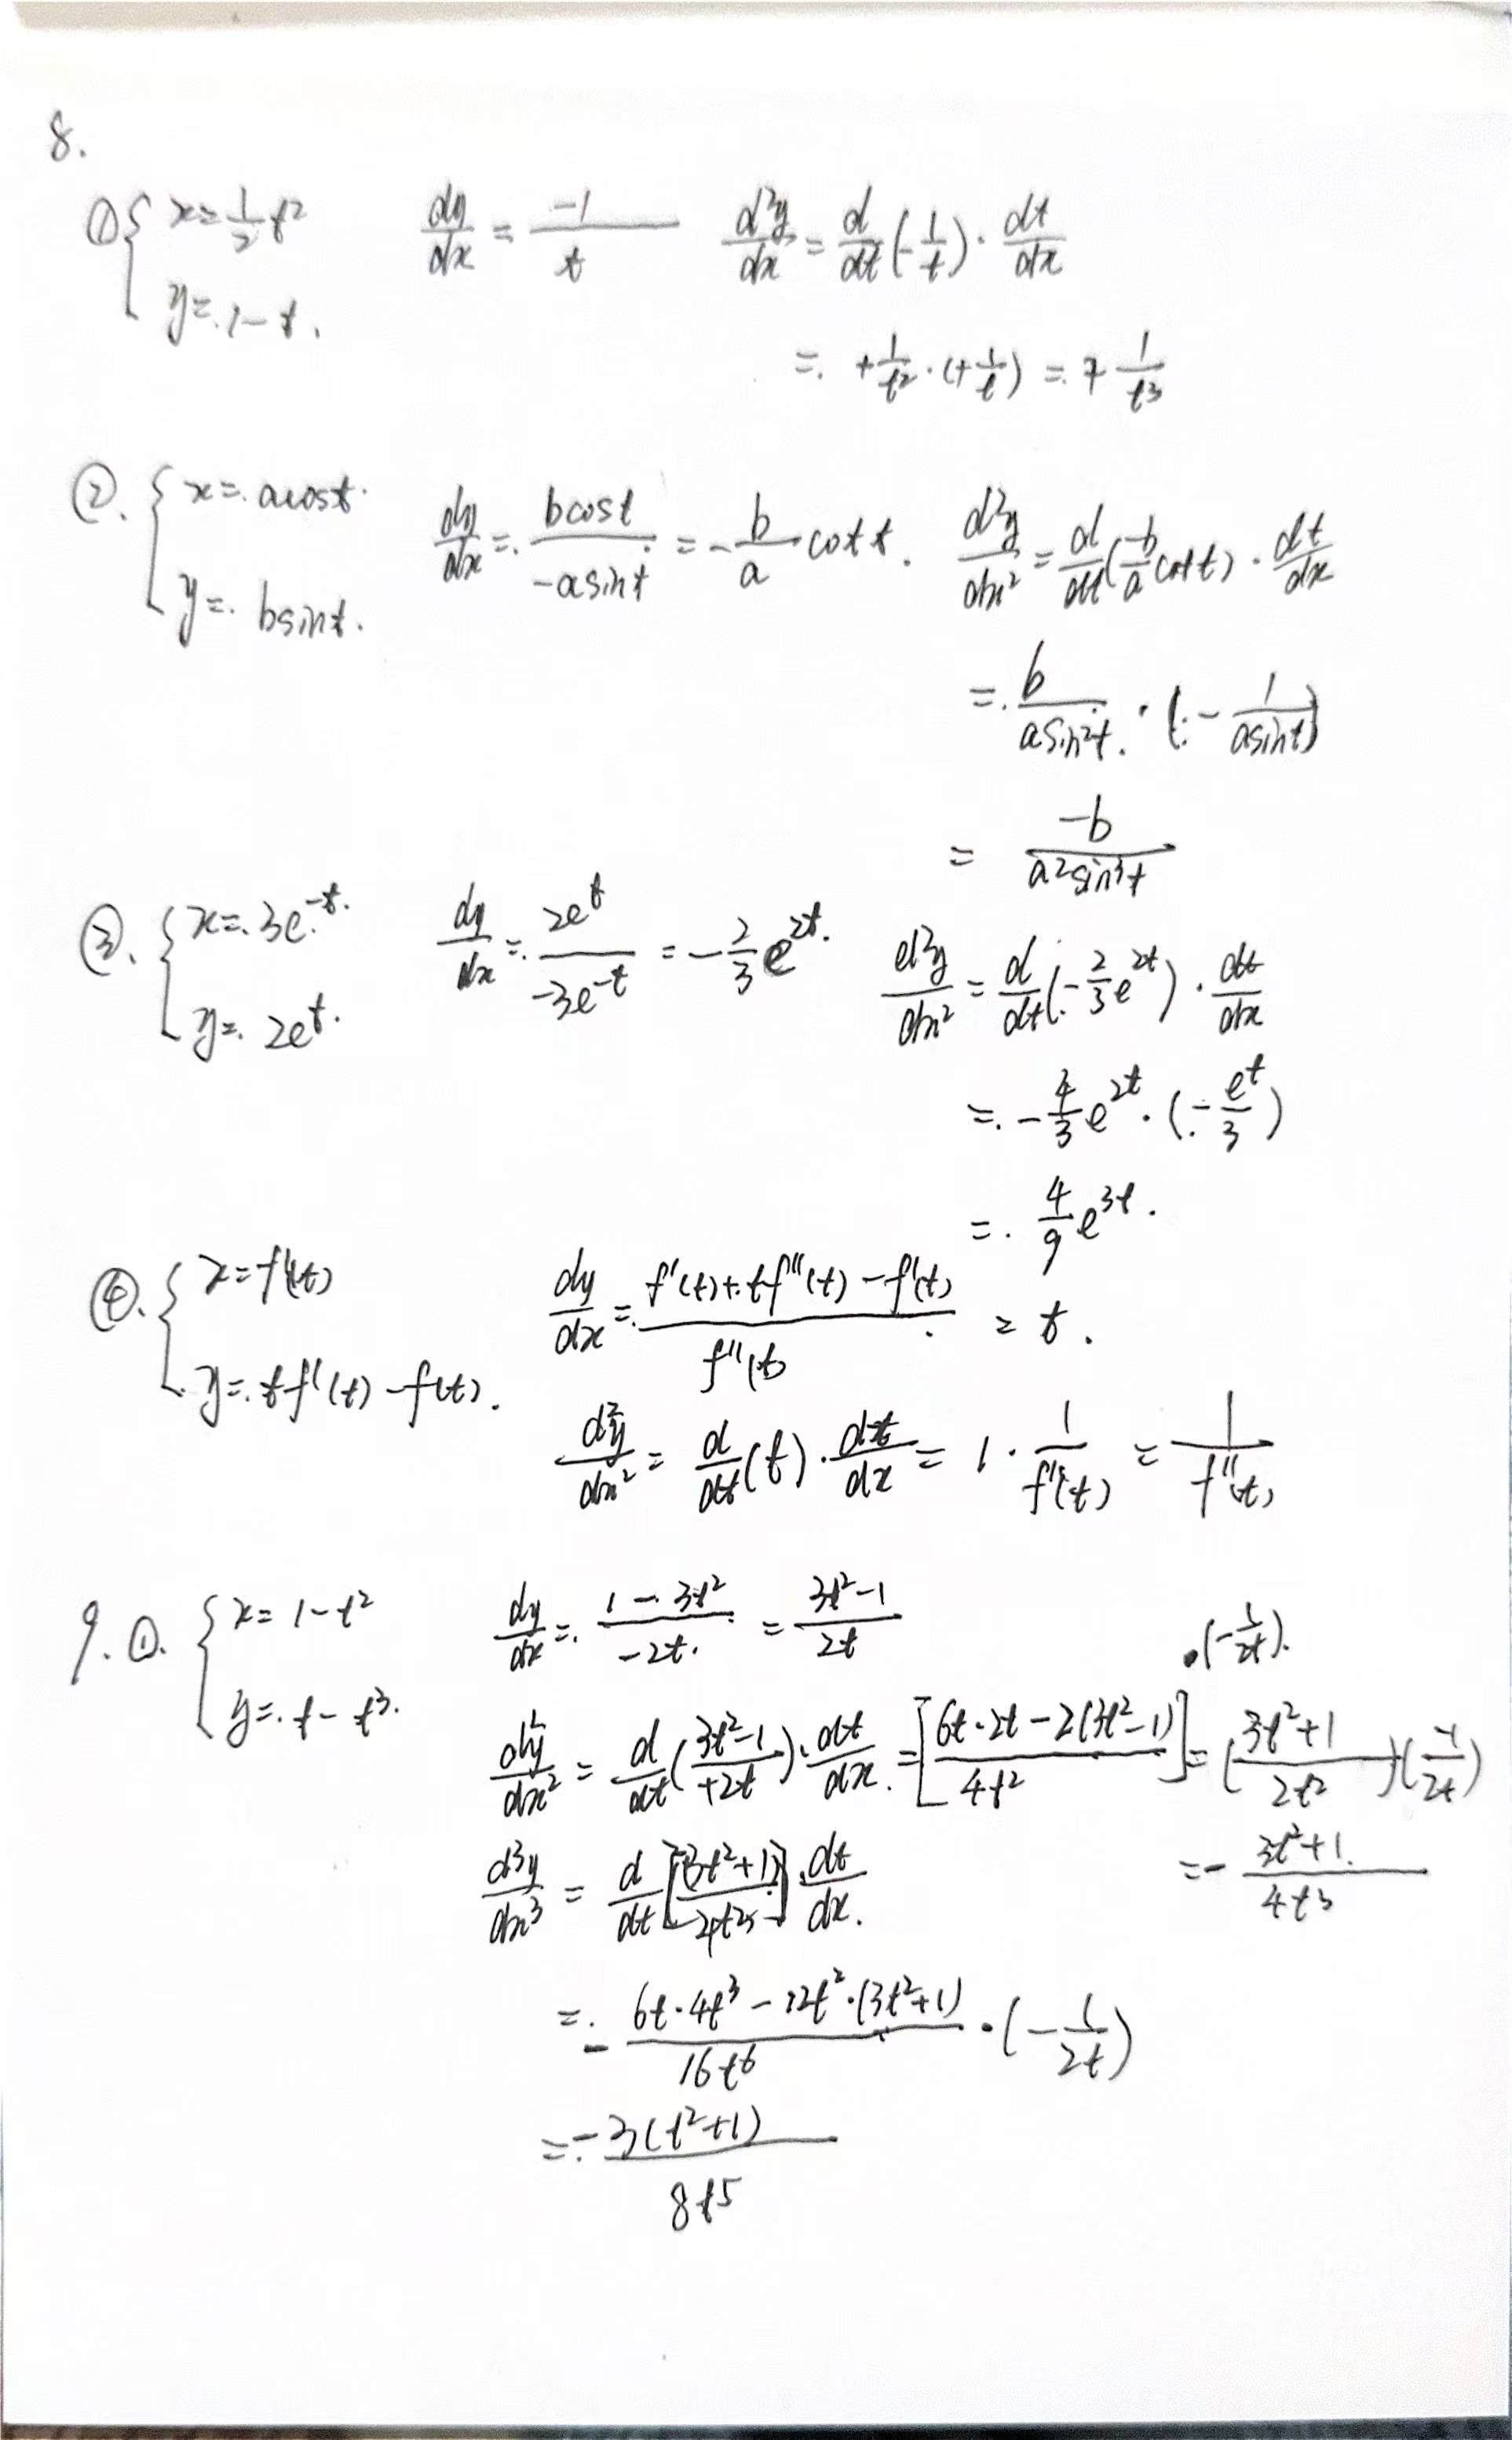 8.
① { x = 1/2 t²  dy/dx = -1/t  d²y/dx = d/dt(-1/t)·dt/dx
y = 1-t.
= +1/t²·(+1/t) = +1/t³
②. { x = acost.  dy/dx = bcost/-asint = -b/a cot t.  d²y/dx² = d/dt(-b/a cot t)·dt/dx
y = bsint.
= b/asin²t·(-1/asint)
= -b/a²sin³t
③. { x = 3e^-t.  dy/dx = 2e^t/-3e^-t = -2/3 e^2t.  d²y/dx² = d/dt(-2/3 e^2t)·dt/dx
y = 2e^t.
= -4/3 e^2t·(-e^t/3)
= 4/9 e^3t.
④. { x = f'(t)  dy/dx = f'(t)+tf''(t)-f'(t)/f''(t) = t.
y = tf'(t)-f(t).
d²y/dx² = d/dt(t)·dt/dx = 1·1/f''(t) = 1/f''(t)
9.①. { x = 1-t²  dy/dx = 1-3t²/-2t = 3t²-1/2t
y = t-t³.
·(-1/2t).
d²y/dx² = d/dt(3t²-1/+2t)·dt/dx = [6t·2t-2(3t²-1)/4t²] = (3t²+1/2t²)(-1/2t)
= -3t²+1/4t³
d³y/dx³ = d/dt[(3t²+1)/-4t³]·dt/dx.
= -6t·4t³-12t²·(3t²+1)/16t⁶·(-1/2t)
= -3(t²+1)/8t⁵